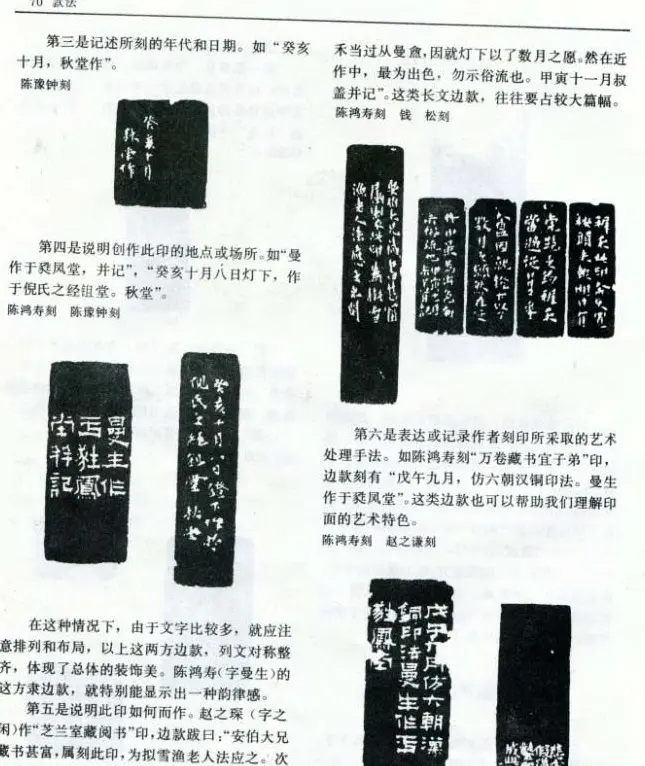 70 款法
第三是记述所刻的年代和日期。如“癸亥
十月，秋堂作”。
陈豫钟刻
癸亥十月
秋堂作
第四是说明创作此印的地点或场所。如“曼
作于㷀凤堂，并记”，“癸亥十月八日灯下，作
于倪氏之经组堂。秋堂”。
陈鸿寿刻 陈豫钟刻
曼生作
堂并記
癸亥十月八日燈下作於
倪氏之經組堂秋堂
在这种情况下，由于文字比较多，就应注
意排列和布局，以上这两方边款，列文对称整
齐，体现了总体的装饰美。陈鸿寿(字曼生)的
这方隶边款，就特别能显示出一种韵律感。
第五是说明此印如何而作。赵之琛（字之
闲)作“芝兰室藏阅书”印，边款跋曰：“安伯大兄
藏书甚富，属刻此印，为拟雪渔老人法应之。次
禾当过从曼盦，因就灯下以了数月之愿。然在近
作中，最为出色，勿示俗流也。甲寅十一月叔
盖并记”。这类长文边款，往往要占较大篇幅。
陈鸿寿刻 钱 松刻
第六是表达或记录作者刻印所采取的艺术
处理手法。如陈鸿寿刻“万卷藏书宜子弟”印，
边款刻有“戊午九月，仿六朝汉铜印法。曼生
作于㷀凤堂”。这类边款也可以帮助我们理解印
面的艺术特色。
陈鸿寿刻 赵之谦刻
戊午九月仿六朝漢
銅印法曼生作于